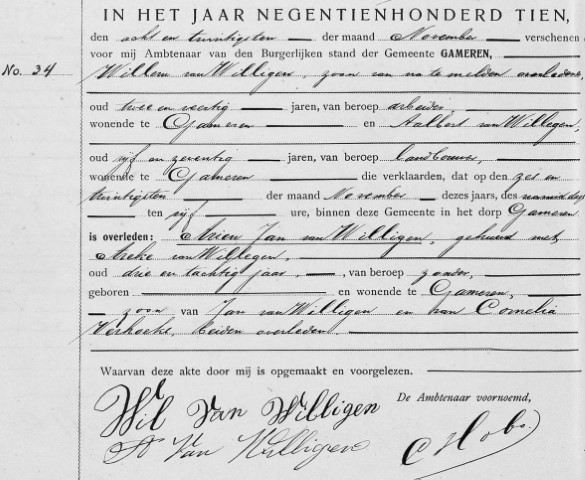 IN HET JAAR NEGENTIENHONDERD TIEN,
den acht en twintigsten der maand November verschenen
voor mij Ambtenaar van den Burgerlijken stand der Gemeente GAMEREN,
No. 34 Willem van Willigen, zoon van na te melden overledene,
oud twee en veertig jaren, van beroep arbeider
wonende te Gameren en Aalbert van Willegen,
oud vijf en zeventig jaren, van beroep landbouwer,
wonende te Gameren die verklaarden, dat op den zes en
twintigsten der maand November dezes jaars, des namiddags
ten vijf ure, binnen deze Gemeente in het dorp Gameren
is overleden: Arien Jan van Willigen, gehuwd met
Areke van Willegen,
oud drie en tachtig jaar, van beroep zonder,
geboren en wonende te Gameren,
zoon van Jan van Willigen en van Cornelia
Verhoeks, beiden overleden.
Waarvan deze akte door mij is opgemaakt en voorgelezen.
De Ambtenaar voornoemd,
Wil Van Willigen
A Van Willigen
C Hobo